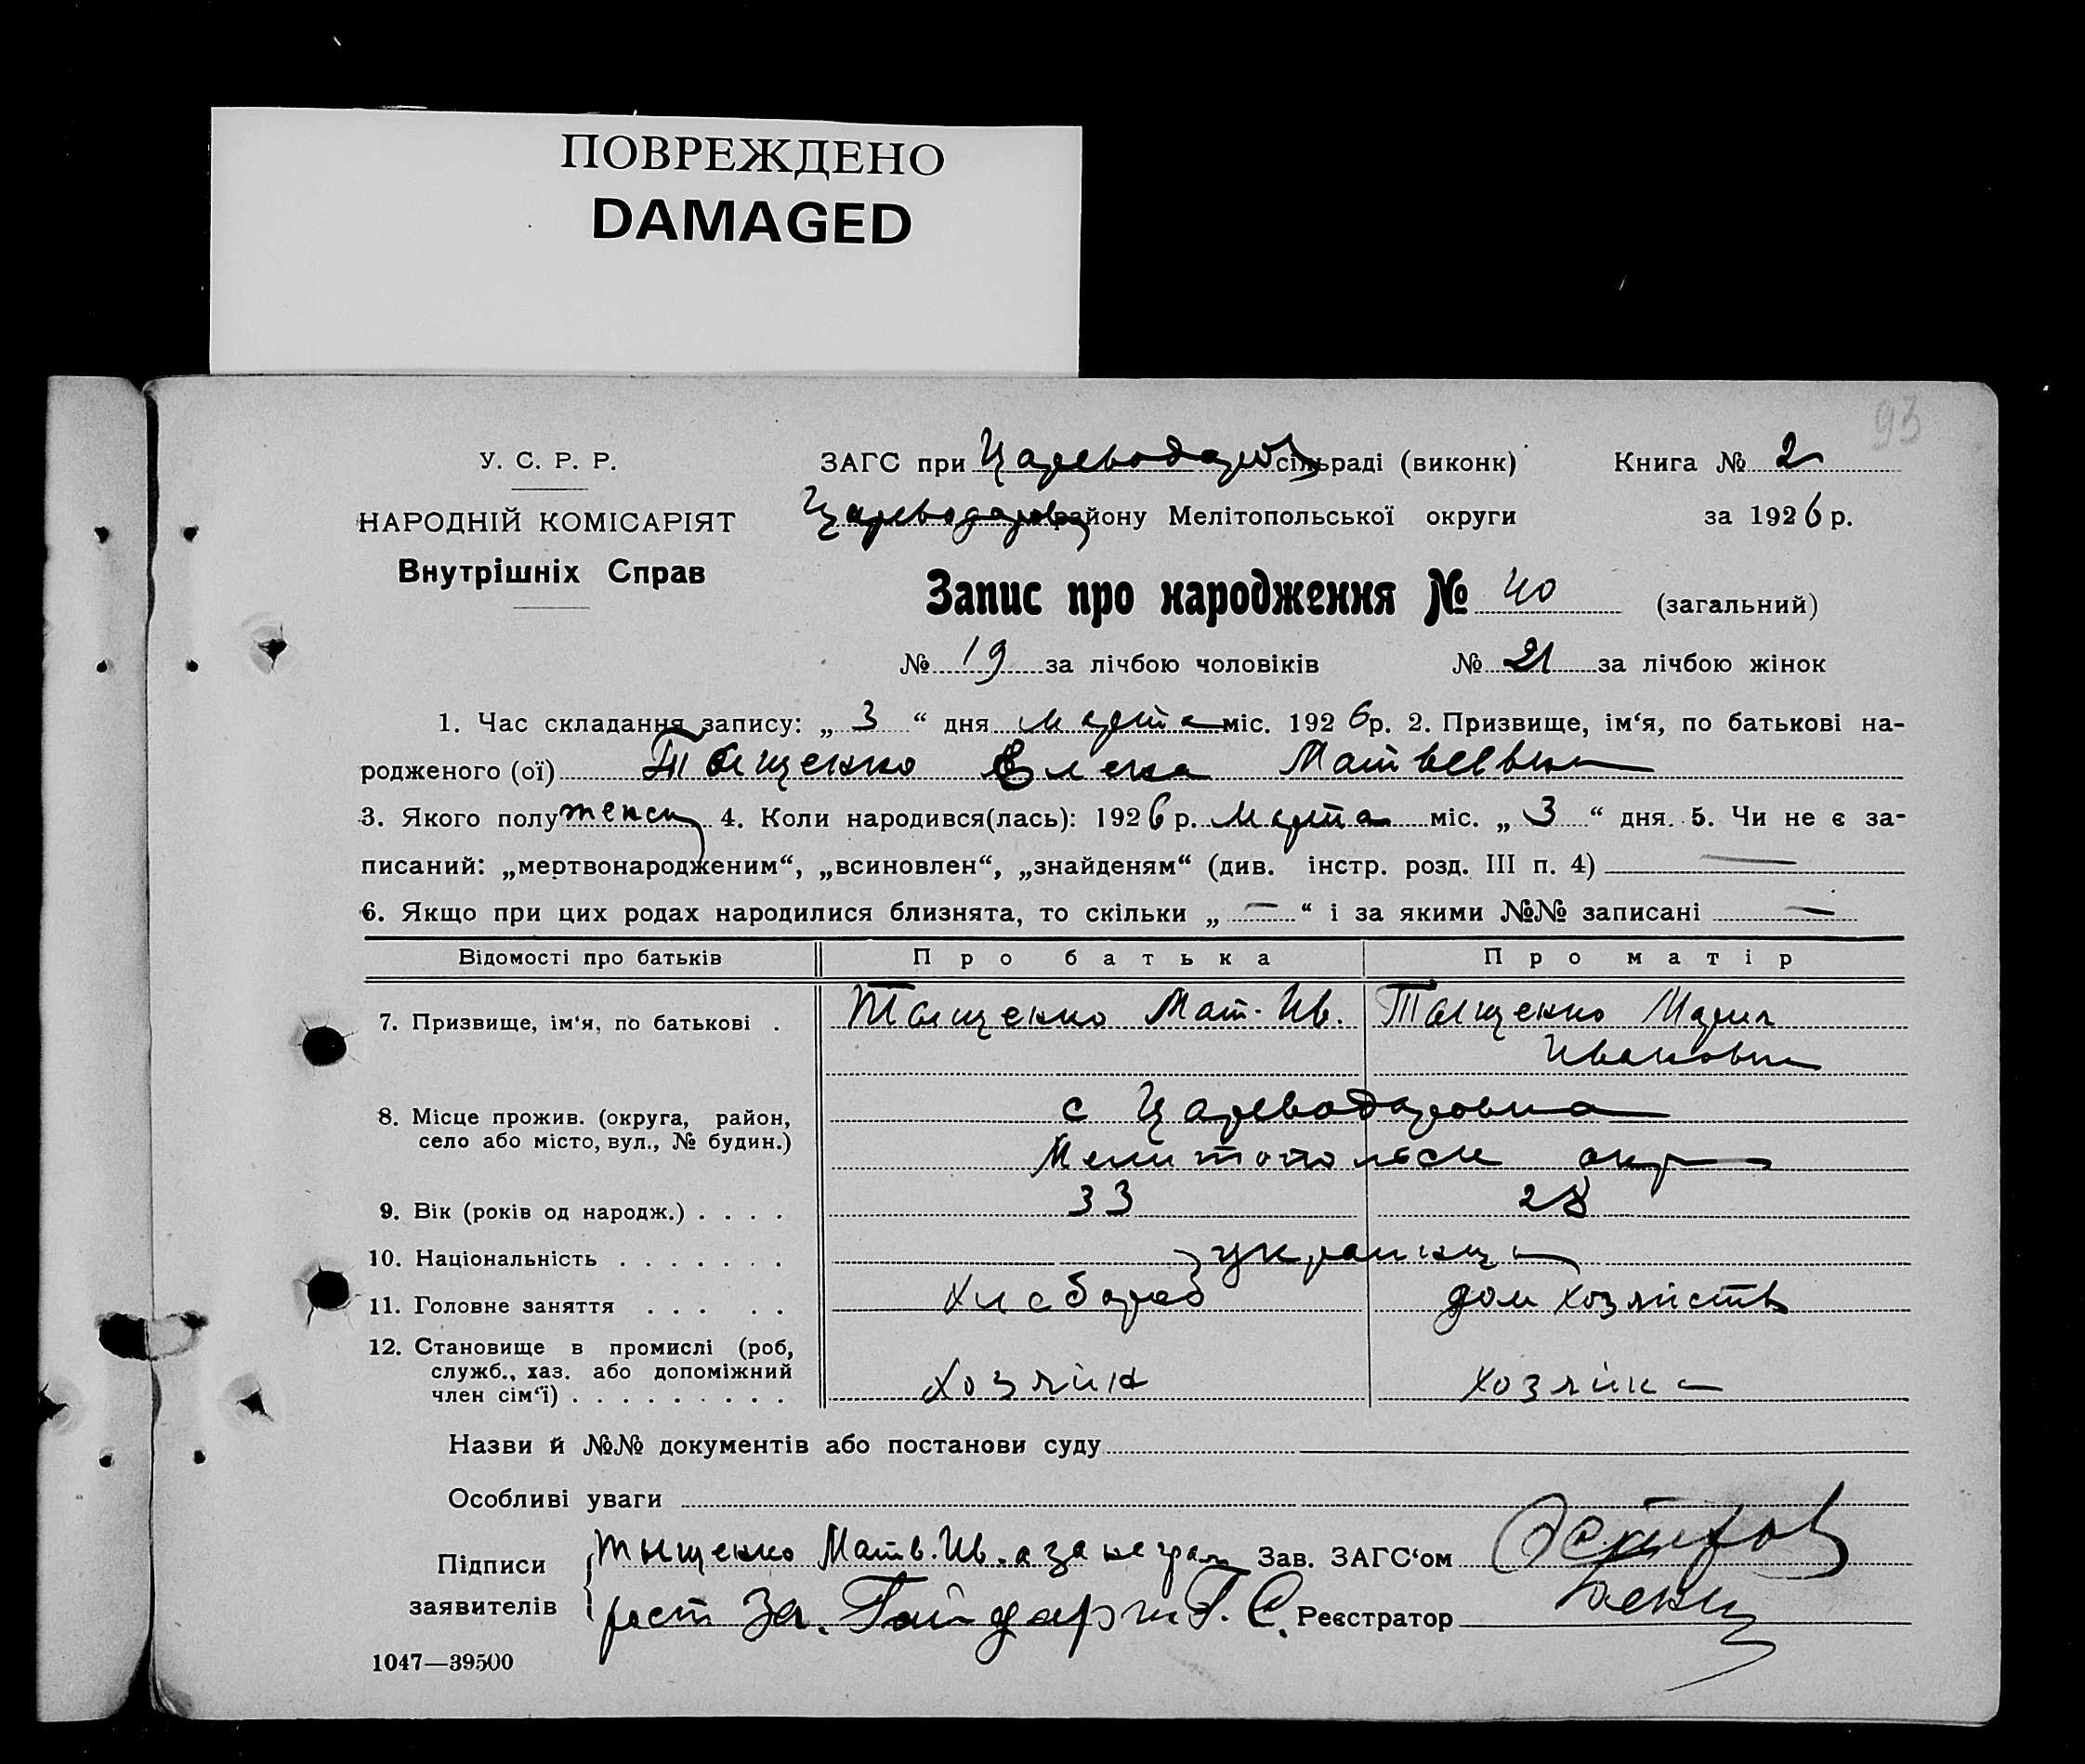 ПОВРЕЖДЕНО
DAMAGED
93
У. С. Р. Р.
НАРОДНІЙ КОМІСАРІЯТ
Внутрішніх Справ
ЗАГС при Цареводаров сільраді (виконк)
Книга № 2
Цареводаров району Мелітопольської округи
за 1926 р.
Запис про народження № 40 (загальний)
№ 19 за лічбою чоловіків № 21 за лічбою жінок
1. Час складання запису: „ 3 “ дня марта міс. 1926 р. 2. Призвище, ім‘я, по батькові на-
родженого (ої) Тыщенко Елена Матвеевна
3. Якого полу женск 4. Коли народився(лась): 1926 р. Марта міс. „ 3 “ дня. 5. Чи не є за-
писаний: „мертвонародженим“, „всиновлен“, „знайденям“ (див. інстр. розд. III п. 4) —
6. Якщо при цих родах народилися близнята, то скільки „ — “ і за якими №№ записані —
Відомості про батьків Про батька Про матір
7. Призвище, ім‘я, по батькові . Тыщенко Мат. Ив. Тыщенко Мария
Ивановна
8. Місце прожив. (округа, район, с Цареводаровка
село або місто, вул., № будин.) Мелитопольск окр
9. Вік (років од народж.) . . . . 33 28
10. Національність . . . . . . . украинцы
11. Головне заняття . . . . . хлебороб дом хозяйств
12. Становище в промислі (роб,
служб., хаз. або допоміжний
член сім‘ї) . . . . . . . . . хозяин хозяйка
Назви й №№ документів або постанови суду
Особливі уваги
Підписи Тыщенко Матв. Ив. а за неграм Зав. ЗАГС‘ом
заявителів Г. С. Реєстратор
1047—39500